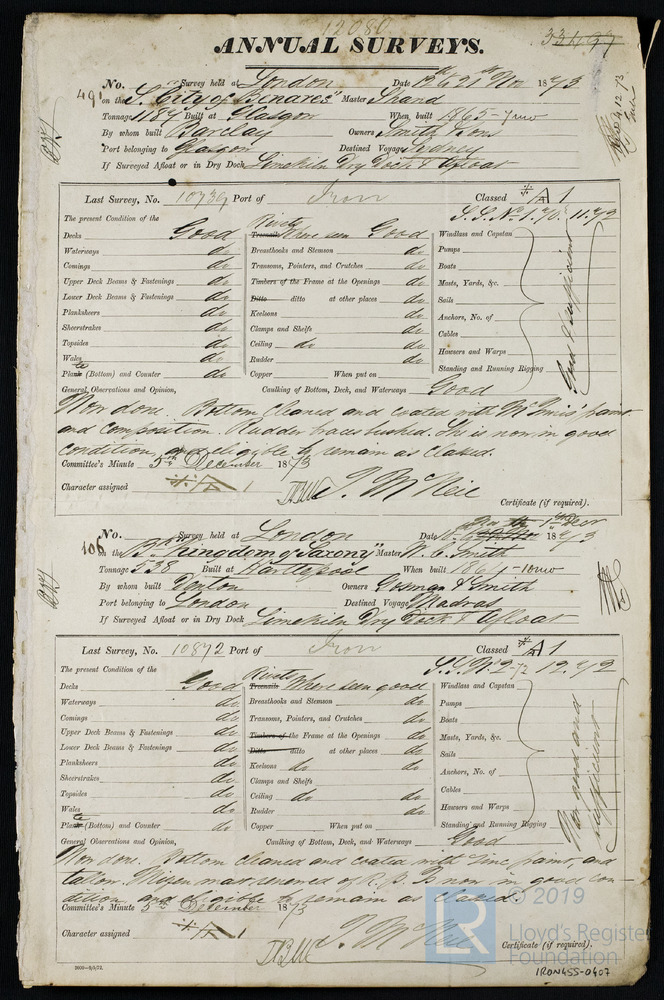 12080
ANNUAL SURVEYS.
33497
No. 491 Survey held at London Date 12th & 21st Nov 1873
on the S. "City of Benares" Master Shand
Tonnage 1189 Built at Glasgow When built 1865-7mo
By whom built Barclay Owners Smith & Sons
Port belonging to Glasgow Destined Voyage Sydney
If Surveyed Afloat or in Dry Dock Limekiln Dry Dock & Afloat
Last Survey, No. 10739 Port of Iron Classed A 1
S.S. No. 1. 70. 11.72
The present Condition of the Rivets
Decks Good Treenails Where seen Good Windlass and Capstan
Waterways do Breasthooks and Stemson do Pumps
Comings do Transoms, Pointers, and Crutches do Boats
Upper Deck Beams & Fastenings do Timbers of the Frame at the Openings do Masts, Yards, &c.
Lower Deck Beams & Fastenings do Ditto ditto at other places do Sails
Planksheers do Keelsons do Anchors, No. of
Sheerstrakes do Clamps and Shelfs do Cables
Topsides do Ceiling do do Hawsers and Warps
Wales do Rudder do Standing and Running Rigging
Good & Sufficient
Plate (Bottom) and Counter do Copper When put on
General Observations and Opinion, Caulking of Bottom, Deck, and Waterways Good
Now done. Bottom cleaned and coated with McInnis' paint
and composition. Rudder braces bushed. She is now in good
condition, and eligible to remain as classed.
Committee's Minute 5th December 1873
Character assigned A 1
J. McNeil
Certificate (if required).
No. 106 Survey held at London Date 1st Decr 1873
on the Bk "Kingdom of Saxony" Master W. C. Smith
Tonnage 538 Built at Hartlepool When built 1864-10mo
By whom built Denton Owners Gorman & Smith
Port belonging to London Destined Voyage Madras
If Surveyed Afloat or in Dry Dock Limekiln Dry Dock & Afloat
Last Survey, No. 10872 Port of Iron Classed A 1
S.S. No. 2-72 12.72
The present Condition of the Rivets
Decks Good Treenails Where seen good Windlass and Capstan
Waterways do Breasthooks and Stemson do Pumps
Comings do Transoms, Pointers, and Crutches do Boats
Upper Deck Beams & Fastenings do Timbers of the Frame at the Openings do Masts, Yards, &c.
Lower Deck Beams & Fastenings do Ditto ditto at other places do Sails
Planksheers do Keelsons do do Anchors, No. of
Sheerstrakes do Clamps and Shelfs Cables
Topsides do Ceiling do do Hawsers and Warps
Wales do Rudder do Standing and Running Rigging
Now good and sufficient
Plate (Bottom) and Counter do Copper When put on
General Observations and Opinion, Caulking of Bottom, Deck, and Waterways Good
Now done. Bottom cleaned and coated with zinc paint, and
tallow. Mizen mast renewed of R.P. Is now in good con-
dition and eligible to remain as classed.
Committee's Minute 5th December 1873
Character assigned A 1
J. McNeil
Certificate (if required).
© 2019
LR Lloyd's Register
Foundation
IRON455-0407